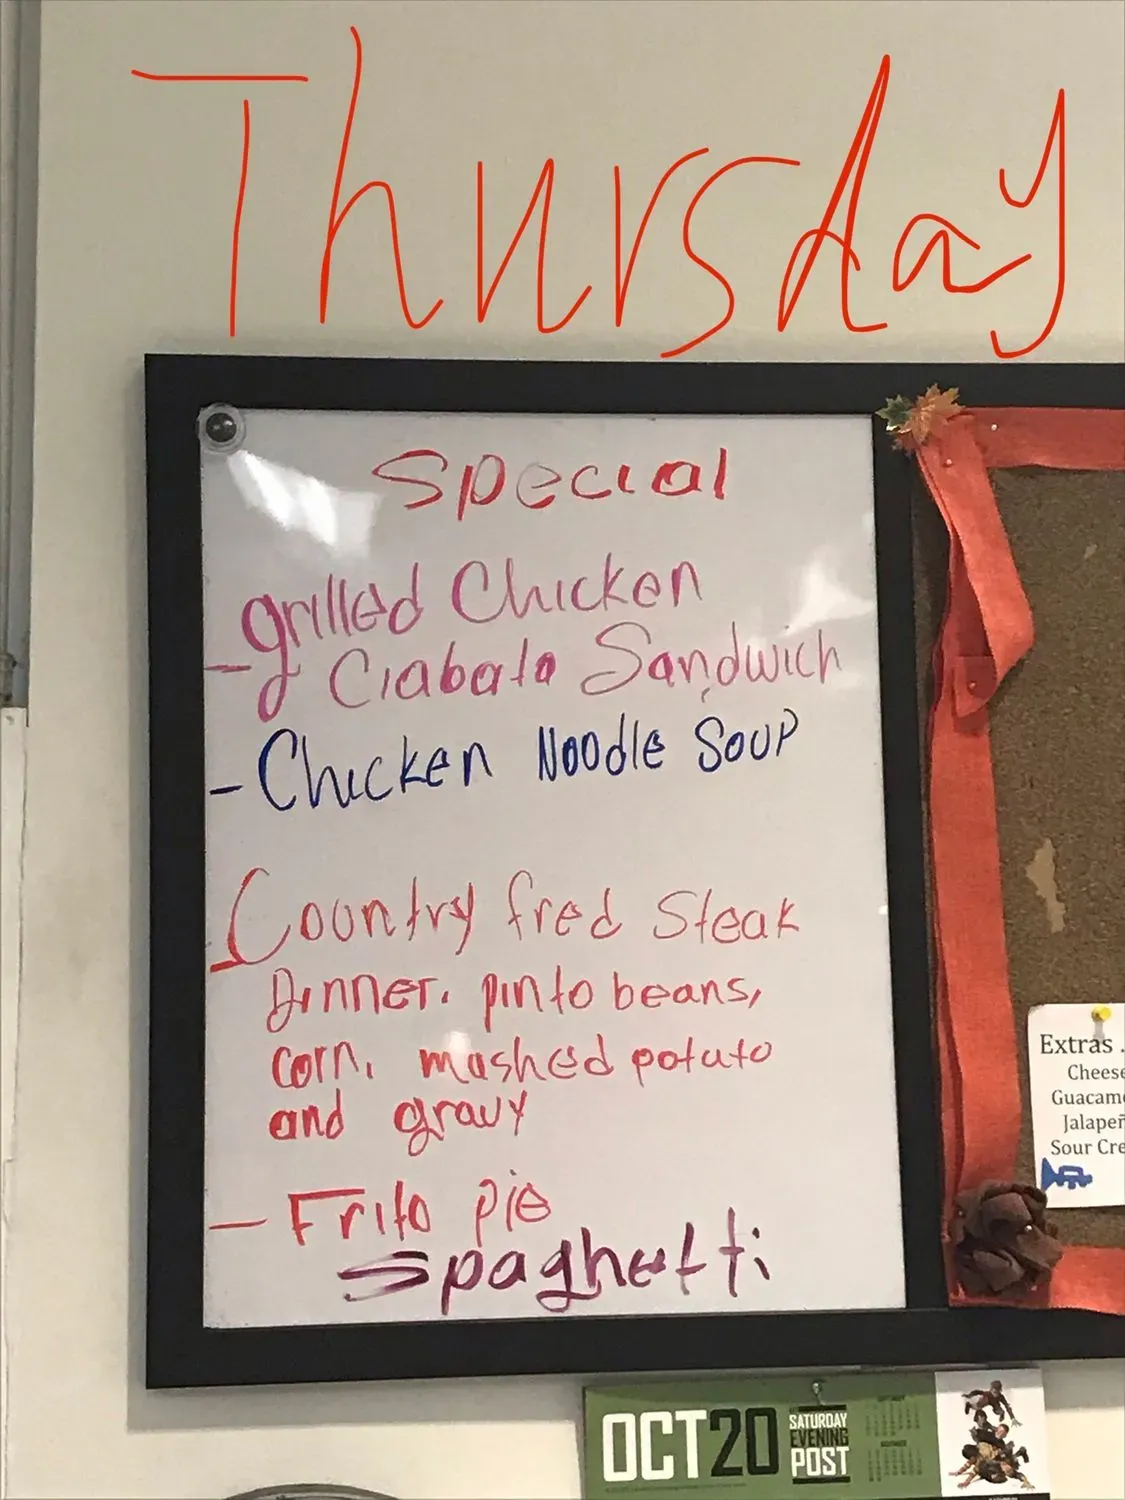 Thursday
Special
grilled Chicken
- Ciabata Sandwich
- Chicken Noodle Soup
Country fred Steak
Dinner. pinto beans,
corn. mashed potuto
and gravy
- Frito pie
Spaghetti
Extras
Cheese
Guacam
Jalapeñ
Sour Cre
OCT20
SATURDAY
EVENING
POST